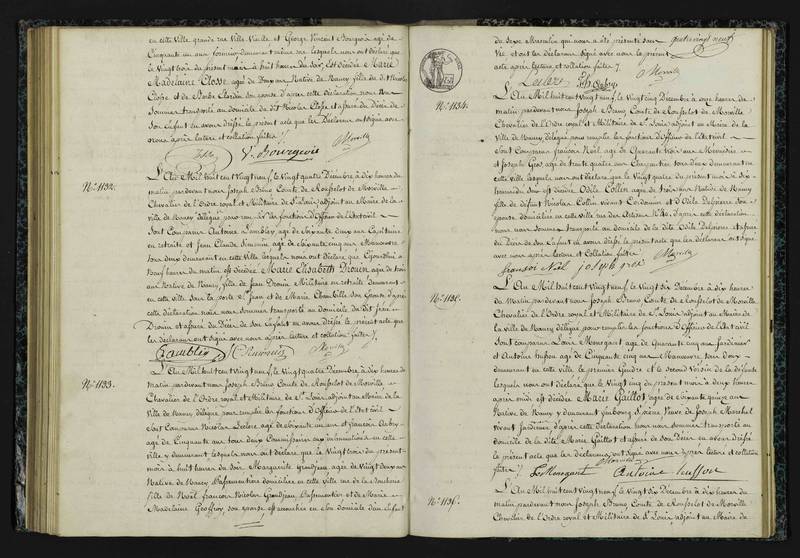 en cette Ville grande rue Ville Vieille et George Vincent Bourgeois âgé de
Cinquante un aux fermier demeurant même rue lesquels nous ont déclaré que
le Vingt trois du présent mois à huit heures du soir, est décédée Marie
Madelaine Closse âgée de Deux ans Native de Nancy fille de dit Nicolas
Closse et de Barbe Clardin son épouse d'après cette déclaration nous nous
sommes transporté au domicile de dit Nicolas Closse et assuré du Décès de
son Enfant en avons dressé le présent acte que les Déclarans ont Signé avec
nous après lecture et collation faites /.
V. Bourgeois Morville
N.° 1132.
L'An Mil huit cent Vingt neuf, le Vingt quatre Décembre à dix heures du
matin pardevant nous Joseph Bruno Comte de Rousselot de Morville
Chevalier de l'Ordre royal et Militaire de S.t Louis adjoint au Maire de la
Ville de Nancy délégué pour remplir les fonctions d'Officier de l'état civil
Sont Comparus Antoine Lamblez âgé de Soixante deux ans Capitaine
en retraite et Jean Claude Simonin âgé de Soixante cinq ans Manœuvre
tous deux demeurant en cette Ville lesquels nous ont déclaré que Cejourd'hui à
Neuf heures du matin est décédée Marie Elisabeth Drouin âgée de trois
ans Native de Nancy, fille de Jean Drouin Militaire en retraite demeurant
en cette ville sous la porte S.t Jean et de Marie Chambille son épouse d'après
cette déclaration nous nous sommes transporté au domicile du dit Jean
Drouin et assuré du Décès de son Enfant en avons dressé le présent acte que
les Déclarans ont Signé avec nous après lecture et collation faites /.
Lamblez Morville
N.° 1133.
L'An Mil huit cent Vingt neuf, le Vingt quatre Décembre à dix heures du
matin pardevant nous Joseph Bruno Comte de Rousselot de Morville
Chevalier de l'Ordre royal et Militaire de S.t Louis adjoint au Maire de la
Ville de Nancy délégué pour remplir les fonctions d'Officier de l'état civil
Sont Comparus Nicolas Leclerc âgé de Soixante un ans et François Aubry
âgé de Cinquante ans tous deux Commissaires aux inhumations en cette
ville y demeurant lesquels nous ont déclaré que le Vingt trois du présent
mois à huit heures du soir Margueritte Grandjean âgée de Vingt deux ans
Native de Nancy Passementière domiciliée en cette ville rue de la
fille de Noël François Nicolas Grandjean Passementier et de Marie
Madelaine Geoffroy, son épouse, est accouchée en son domicile d'un Enfant
du sexe Masculin qui nous a été présenté sans
Vie et ont les déclarans signé avec nous le présent
acte après lecture et collation faites /.
Leclerc Aubry Morville
N.° 1134.
L'An Mil huit cent Vingt neuf, le Vingt cinq Décembre à onze heures du
matin pardevant nous Joseph Bruno Comte de Rousselot de Morville
Chevalier de l'Ordre royal et Militaire de S.t Louis adjoint au Maire de la
Ville de Nancy délégué pour remplir les fonctions d'Officier de l'état civil
Sont Comparus François Noël âgé de Quarante trois ans Menuisier
et Joseph Gros âgé de trente quatre ans Charpentier tous deux demeurant en
cette ville lesquels nous ont déclaré que le Vingt quatre du présent mois à dix
heures du soir est décédée Odile Collin âgée de trois ans Native de Nancy
fille de défunt Nicolas Collin vivant Cordonnier et d'Odile Delpierre son
épouse domiciliée en cette Ville rue des Artisans N.° 40 d'après cette déclaration
nous nous sommes transporté au domicile de la dite Odile Delpierre et assuré
du Décès de son Enfant en avons dressé le présent acte que les déclarans ont Signé
avec nous après lecture et Collation faites /.
fransoi Noël joseph gros Morville
N.° 1135.
L'An Mil huit cent Vingt neuf, le Vingt six Décembre à dix heures
du Matin pardevant nous Joseph Bruno Comte de Rousselot de Morville
Chevalier de l'Ordre royal et Militaire de S.t Louis adjoint au Maire de
la Ville de Nancy délégué pour remplir les fonctions d'Officier de l'état civil
Sont Comparus Louis Monsgant âgé de Quarante cinq ans Jardinier
et Antoine Husson âgé de Cinquante cinq ans Manœuvre tous deux
demeurant en cette ville, le premier Gendre et le second Voisin de la défunte
lesquels nous ont déclaré que le Vingt cinq du présent mois à deux heures
après midi est décédée Marie Gaillot âgée de soixante quinze ans
Native de Nancy y demeurant faubourg S.t Pierre Veuve de Joseph Marchal
vivant Jardinier d'après cette déclaration nous nous sommes transporté au
domicile de la dite Marie Gaillot et assuré de son Décès en avons dressé
le présent acte que les déclarans ont Signé avec nous après lecture et collation
faites /.
L. Monsgant Morville Antoine husson
N.° 1136.
L'An Mil huit cent Vingt neuf, le Vingt six Décembre à dix heures du
matin pardevant nous Joseph Bruno Comte de Rousselot de Morville
Chevalier de l'Ordre royal et Militaire de S.t Louis adjoint au Maire de